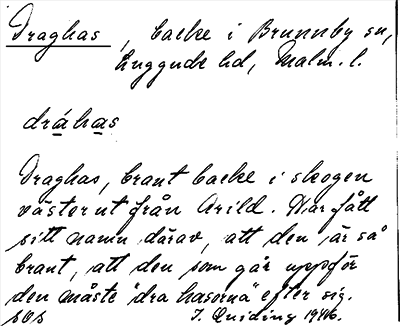 Draghas, backe i Brunnby sn,
Luggude hd, Malm. l.
dráhas
Draghas, brant backe i skogen
västerut från Arild. Har fått
sitt namn därav, att den är så
brant, att den som går uppför
den måste "dra hasorna" efter sig.
SOS I. Quiding 1946.